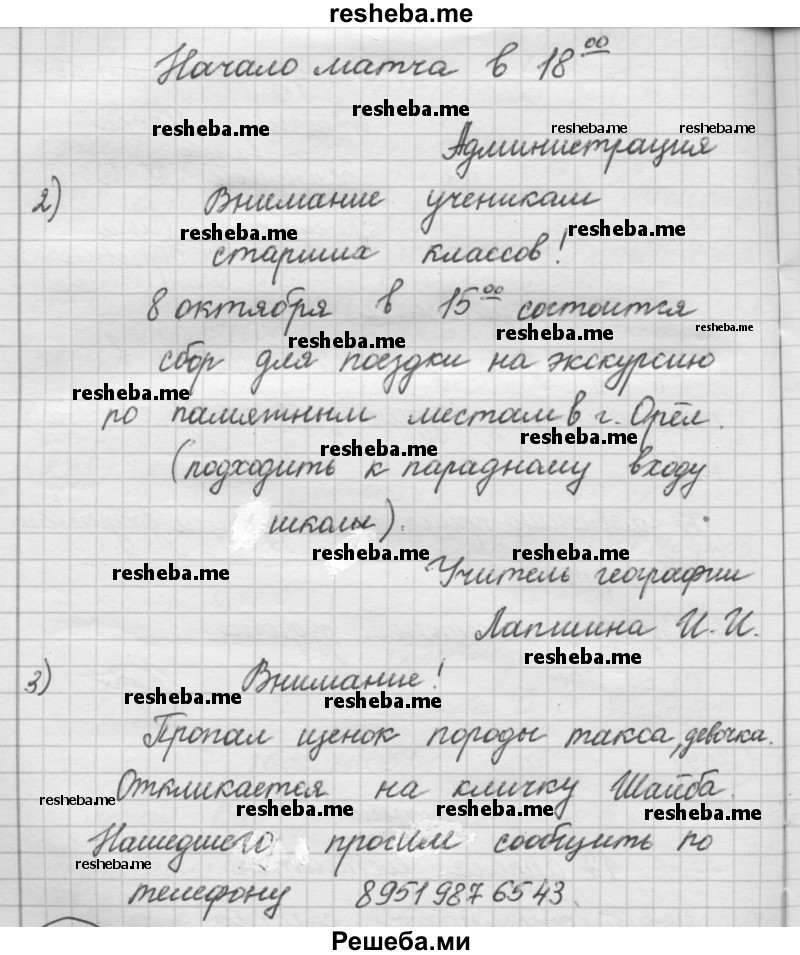 resheba.me
Начало матча в 18⁰⁰
resheba.me
resheba.me resheba.me resheba.me
Администрация
2) Внимание ученикам
resheba.me resheba.me
старших классов!
8 октября в 15⁰⁰ состоится
resheba.me resheba.me resheba.me
сбор для поездки на экскурсию
resheba.me
по памятным местам в г. Орёл.
resheba.me resheba.me
(подходить к парадному входу
школы).
resheba.me resheba.me
resheba.me
Учитель географии
Лапшина И. И.
resheba.me
3) Внимание!
resheba.me resheba.me
Пропал щенок породы такса, девочка.
Откликается на кличку Шайба.
resheba.me resheba.me resheba.me resheba.me
Нашедшего просим сообщить по
resheba.me
телефону 89519876543.
Решеба.ми